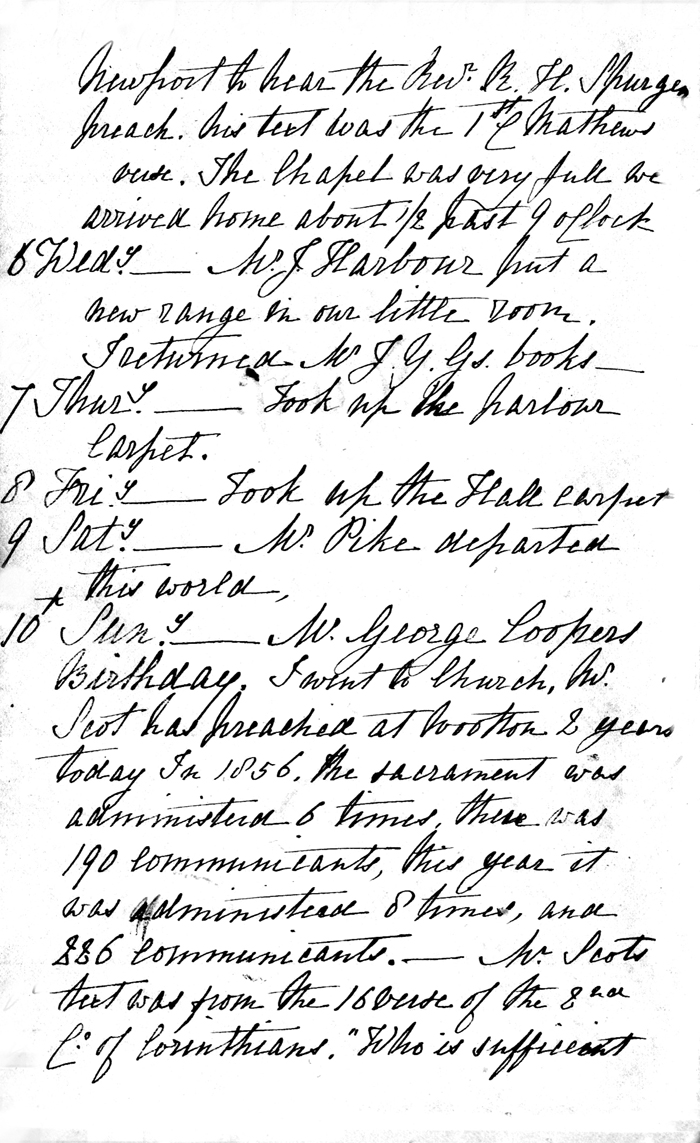 Newport to hear the Revr. R. H. Spurgeo
preach. his text was the 1st C Mathews
verse. The Chapel was very full we
arrived home about 1/2 past 9 oClock
6 Wedy. — Mr J Harbour put a
new range in our little room.
I returned Mr J. Y. Gs. books —
7 Thury. — Took up the parlour
Carpet.
8 Friy. — Took up the Hall carpet
9 Saty. — Mr Pike departed
this world,
x
10 Suny. — Mr. George Coopers
Birthday. I went to Church, Mr.
Scot has preached at Wootton 2 years
today In 1856. the sacrament was
administerd 6 times, there was
190 communicants, this year it
was administerd 8 times, and
226 communicants. — Mr. Scots
text was from the 16 verse of the 2nd
C. of Corinthians. "Who is sufficient